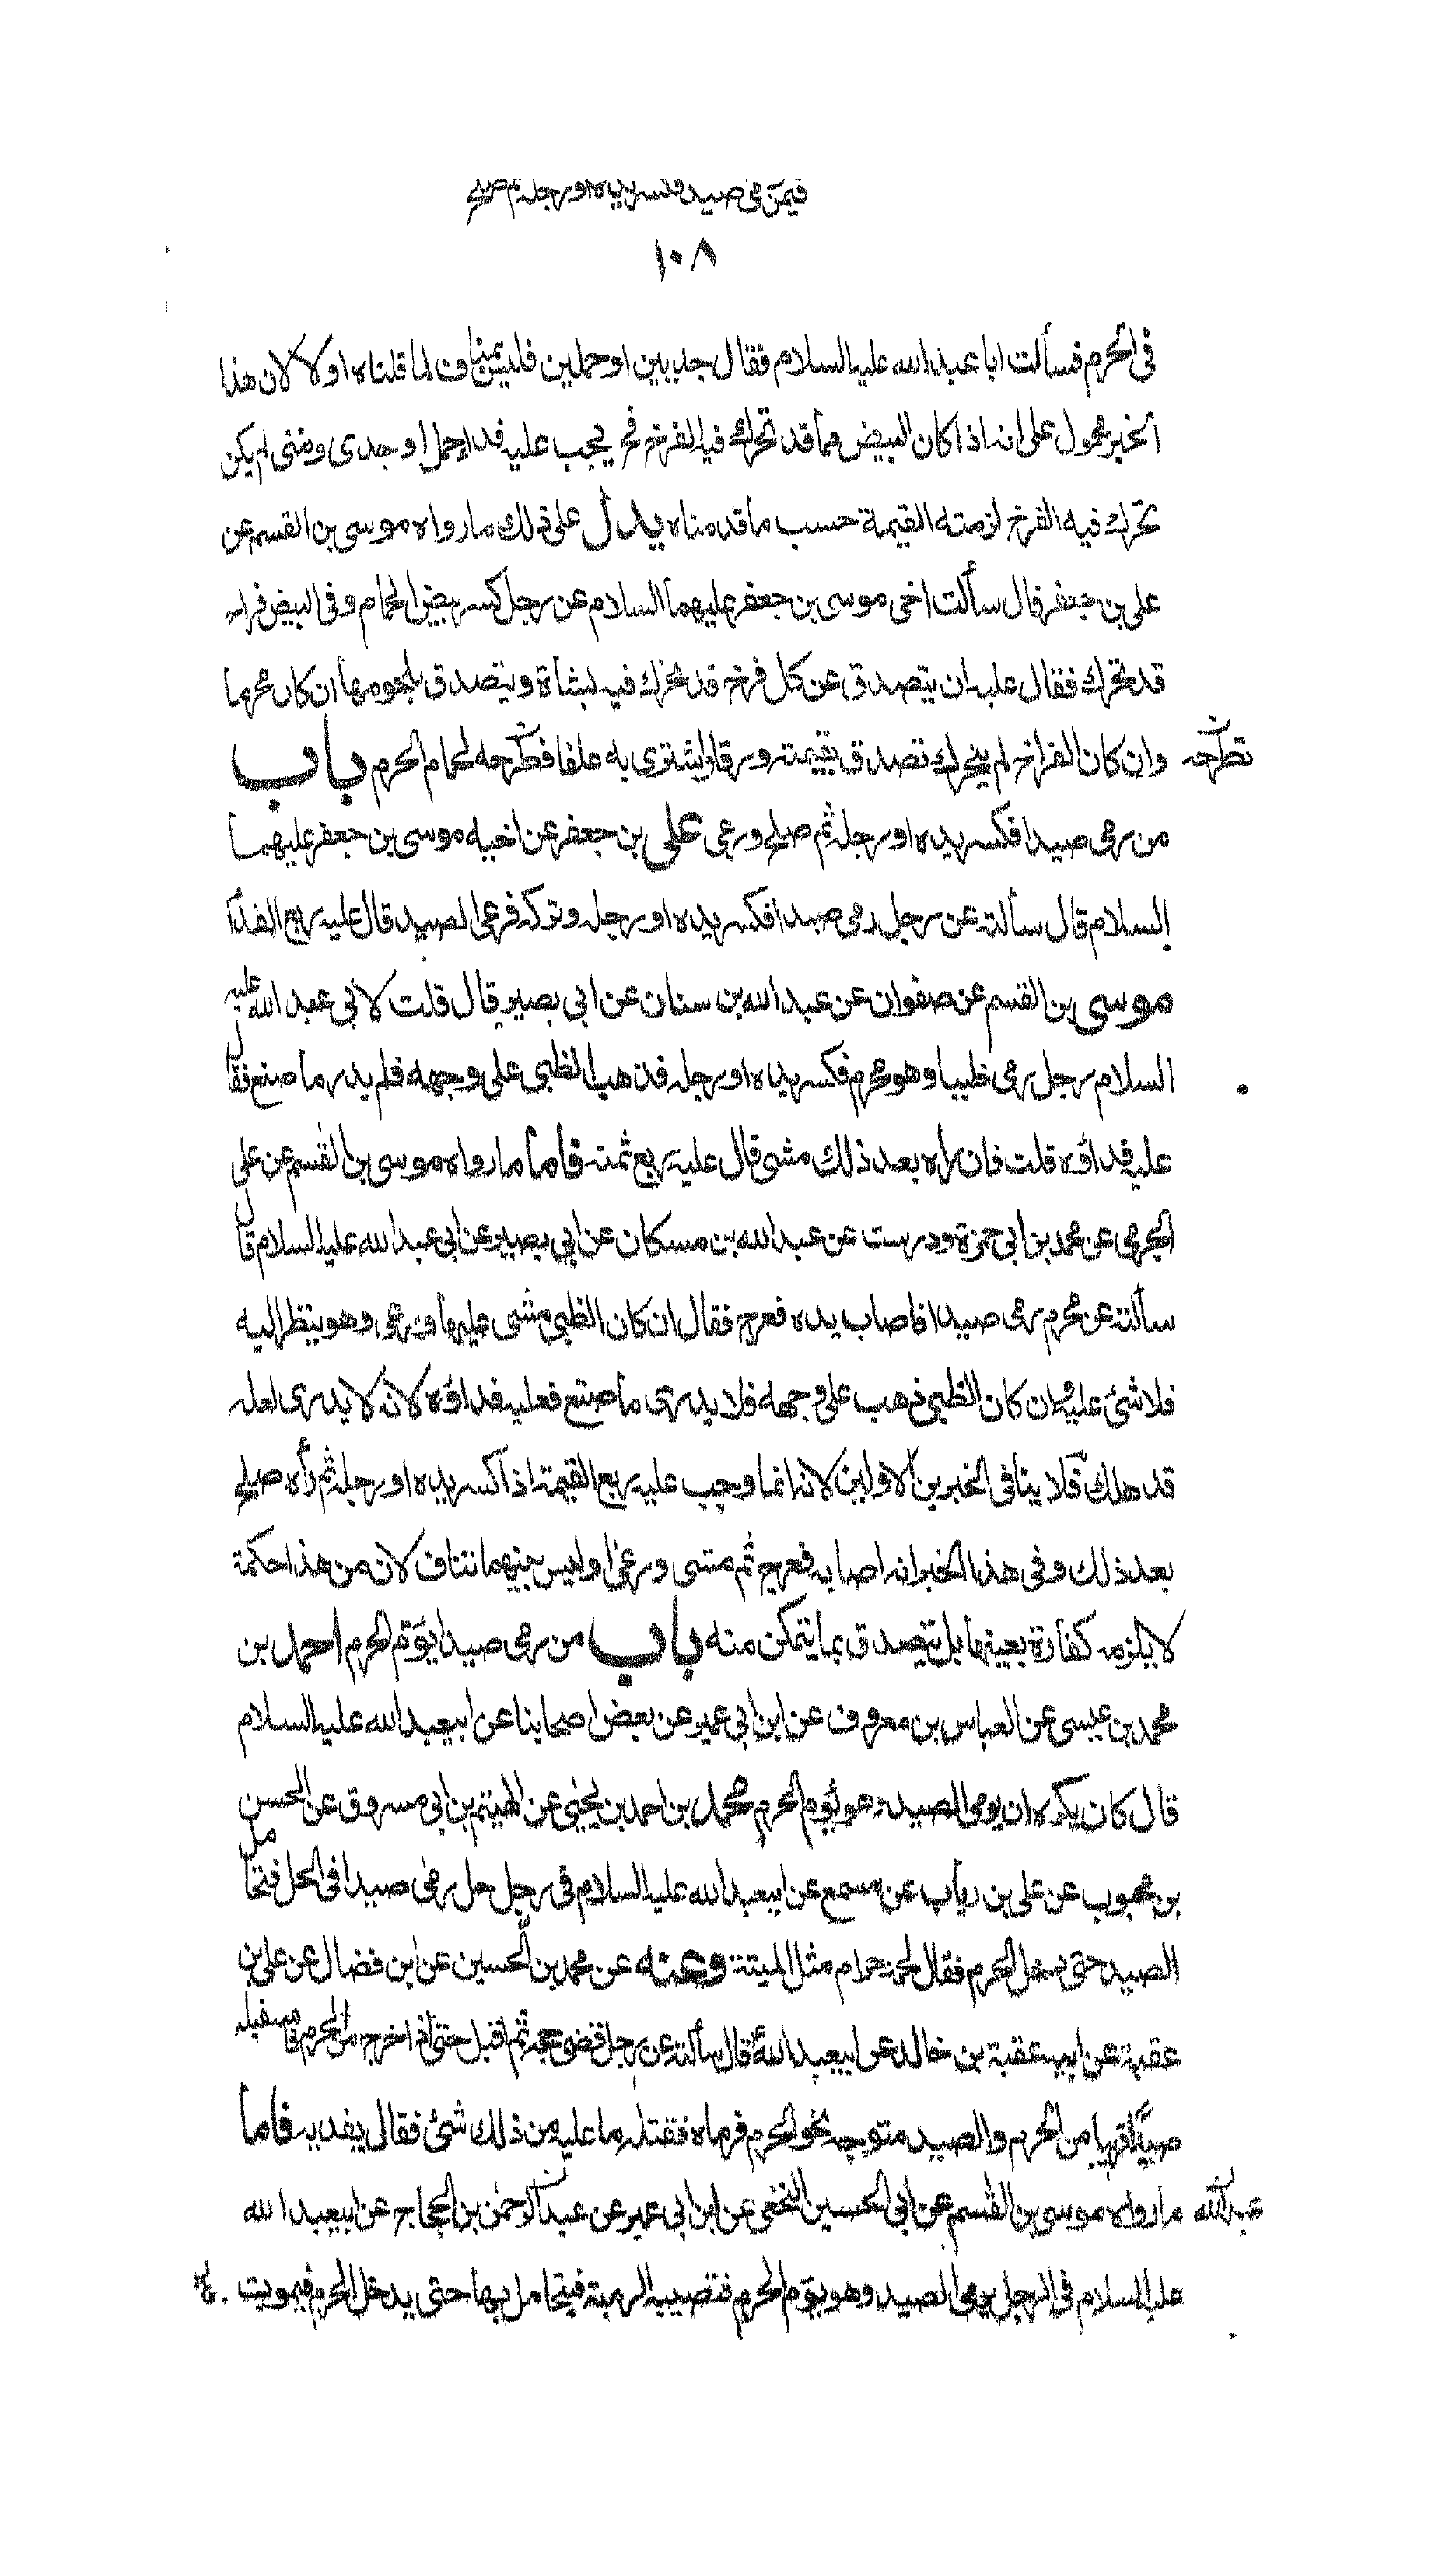 فيمن رمى صيدا فكسر يده او رجله ثم صلح
١٠٨
فى الحرم فسألت ابا عبد الله عليه السلام فقال جديين او حملين فليس بمناف لما قلناه اولا لان هذا
الخبر محمول على انه اذا كان البيض مما قد تحرك فيه الفرخ فح يجب عليه فداء حمل او جدى ومتى لم يكن
تحرك فيه الفرخ لزمته القيمة حسب ما قدمناه يدل على ذلك ما رواه موسى بن القسم عن
على بن جعفر قال سألت اخى موسى بن جعفر عليهما السلام عن رجل كسر بيض الحمام وفى البيض فراخ
قد تحرك فقال عليه ان يتصدق عن كل فرخ قد تحرك فيه بشاة ويتصدق بلحومها ان كان محرما
وان كان الفراخ لم يتحرك تصدق بقيمته ورقا واشترى به علفا فطرحه لحمام الحرم باب
تطرحه
من رمى صيدا فكسر يده او رجله ثم صلح ورعى على بن جعفر عن اخيه موسى بن جعفر عليهما
السلام قال سألته عن رجل رمى صيدا فكسر يده او رجله وتركه فرعى الصيد قال عليه ربع الفداء
موسى بن القسم عن صفوان عن عبد الله بن سنان عن ابى بصير قال قلت لابى عبد الله عليه
السلام رجل رمى ظبيا وهو محرم فكسر يده او رجله فذهب الظبى على وجهه فلم يدر ما صنع فقال
عليه فداؤه قلت فان راه بعد ذلك مشى قال عليه ربع ثمنه فأما ما رواه موسى بن القسم عن على
الجرمى عن محمد بن ابى حمزة ودرست عن عبد الله بن مسكان عن ابى بصير عن ابى عبد الله عليه السلام قال
سألته عن محرم رمى صيدا فاصاب يده فعرج فقال ان كان الظبى مشى عليها ورعى وهو ينظر اليه
فلا شئ عليه وان كان الظبى ذهب على وجهه فلا يدرى ما صنع فعليه فداؤه لانه لا يدرى لعله
قد هلك فلا ينافى الخبرين الاولين لانه انما وجب عليه ربع القيمة اذا كسر يده او رجله ثم رأه صلح
بعد ذلك وفى هذا الخبر انه اصابه فعرج ثم مشى ورعى وليس بينهما تناف لان من هذا حكمه
لا يلزمه كفارة بعينها بل يتصدق بما يتمكن منه باب من رمى صيدا يؤم الحرم احمد بن
محمد بن عيسى عن العباس بن معروف عن ابن ابى عمير عن بعض اصحابنا عن ابيعبد الله عليه السلام
قال كان يكره ان يرمى الصيد وهو يؤم الحرم محمد بن احمد بن يحيى عن الهيثم بن ابى مسروق عن الحسن
بن محبوب عن على بن رياب عن مسمع عن ابيعبد الله عليه السلام فى رجل حل رمى صيدا فى الحل فتحامل
الصيد حتى دخل الحرم فقال لحمه حرام مثل الميتة وعنه عن محمد بن الحسين عن ابن فضال عن على بن
عقبة عن ابيه عقبة بن خالد عن ابيعبد الله قال سألته عن رجل قضى حجه ثم اقبل حتى اذا خرج من الحرم فاستقبله
صيد قريبا من الحرم والصيد متوجه نحو الحرم فرماه فقتله ما عليه من ذلك شئ فقال يفديه فاما
ما رواه موسى بن القسم عن ابى الحسين النخعى عن ابن ابى عمير عن عبد الرحمن بن الحجاج عن ابيعبد الله
عبد الله
عليه السلام فى الرجل يرمى الصيد وهو يؤم الحرم فتصيبه الرمية فيتحامل بها حتى يدخل الحرم فيموت